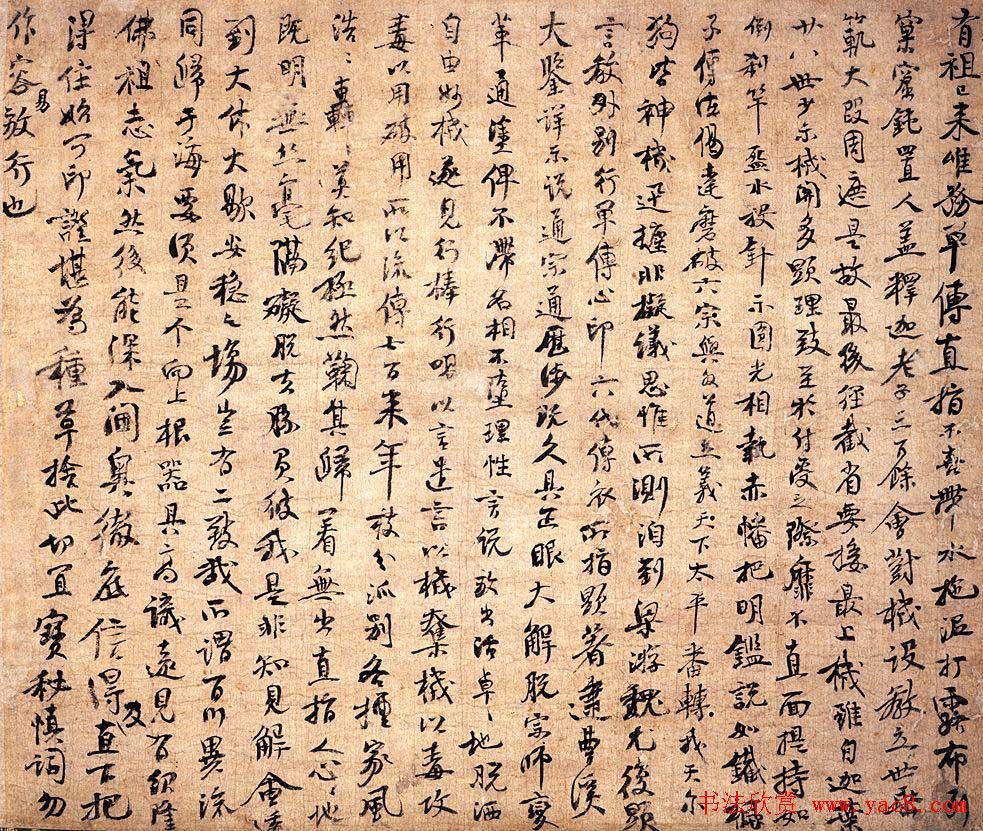 有祖已来唯務単傳直指不喜帶水拖泥打露布列
窠窟鈍置人盖釋迦老子三百餘會對機設教立世垂
範大段周遮是故最後径截省要接最上機雖自迦葉
廿八世少示機関多顕理致至於付受之際靡不直面提持如
倒刹竿盋水投針示圎光相執赤幡把明鑑説如鐵橛
子傳法偈達磨破六宗與外道立義天下太平番轉我天尔
狗皆神機迅捷非擬議思惟所測洎到梁游魏尤復顕
言教外別行単傳心印六代傳衣所指顕著逮曹溪
大鑒詳示説通宗通歴涉既久具正眼大解脱宗師變
革通塗俾不滯名相不墮理性言説放出活卓〻地脱洒
自由妙機遂見行棒行喝以言遣言以機奪機以毒攻
毒以用破用所以流傳七百来年枝分派別各擅家風
浩〻轟〻莫知紀極然鞠其歸著無出直指人心〻地
既明無絲毫隔礙脱去勝負彼我是非知見解會透
到大休大歇安穩之場豈有二致哉所謂百川異流
同歸于海要須是个向上根器具高識遠見有紹隆
佛祖志氣然後能深入閫奥徹底信得及直下把
得住始可印證堪為種草捨此切宜寳秘慎詞勿
作容易放行也
书法欣赏 www.yac8.com